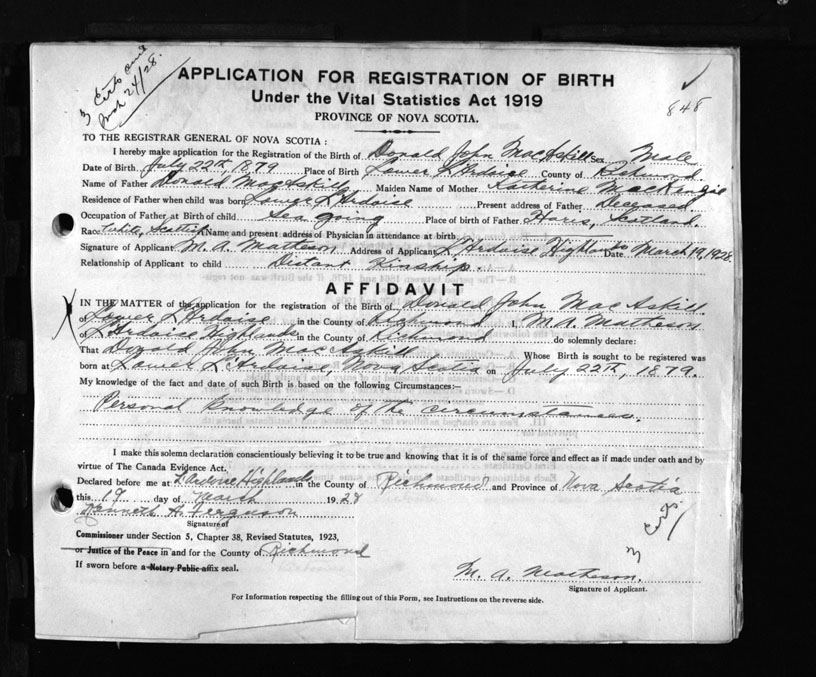 3 Certs
Mch 24/28.
APPLICATION FOR REGISTRATION OF BIRTH
Under the Vital Statistics Act 1919
848
PROVINCE OF NOVA SCOTIA.
TO THE REGISTRAR GENERAL OF NOVA SCOTIA:
I hereby make application for the Registration of the Birth of Donald John MacAskill Sex Male
Date of Birth July 22th, 1879 Place of Birth Lower L'Ardoise County of Richmond
Name of Father Donald MacAskill Maiden Name of Mother Katherine MacKenzie
Residence of Father when child was born Lower L'Ardoise Present address of Father Deceased
Occupation of Father at Birth of child Sea going Place of birth of Father Haris, Scotland.
Race White, Scottish Name and present address of Physician in attendance at birth
Signature of Applicant M. A. Matheson Address of Applicant L'Ardoise Highlands Date March 19, 1928
Relationship of Applicant to child Distant Kinship.
AFFIDAVIT
IN THE MATTER of the application for the registration of the Birth of Donald John MacAskill.
of Lower L'Ardoise in the County of Richmond I, M. A. Matheson
of L'Ardoise Highlands in the County of Richmond do solemnly declare:
That Donald John MacAskill Whose Birth is sought to be registered was
born at Lower L'Ardoise, Nova Scotia on July 22th, 1879.
My knowledge of the fact and date of such Birth is based on the following Circumstances:—
Personal knowledge of the circumstances.
I make this solemn declaration conscientiously believing it to be true and knowing that it is of the same force and effect as if made under oath and by
virtue of The Canada Evidence Act.
Declared before me at L'Ardoise Highlands in the County of Richmond and Province of Nova Scotia
this 19 day of March 1928
Kenneth A. Ferguson
Signature of
Commissioner under Section 5, Chapter 38, Revised Statutes, 1923,
or Justice of the Peace in and for the County of Richmond
If sworn before a Notary Public affix seal.
3 Certs.
M. A. Matheson.
Signature of Applicant.
For Information respecting the filling out of this Form, see Instructions on the reverse side.